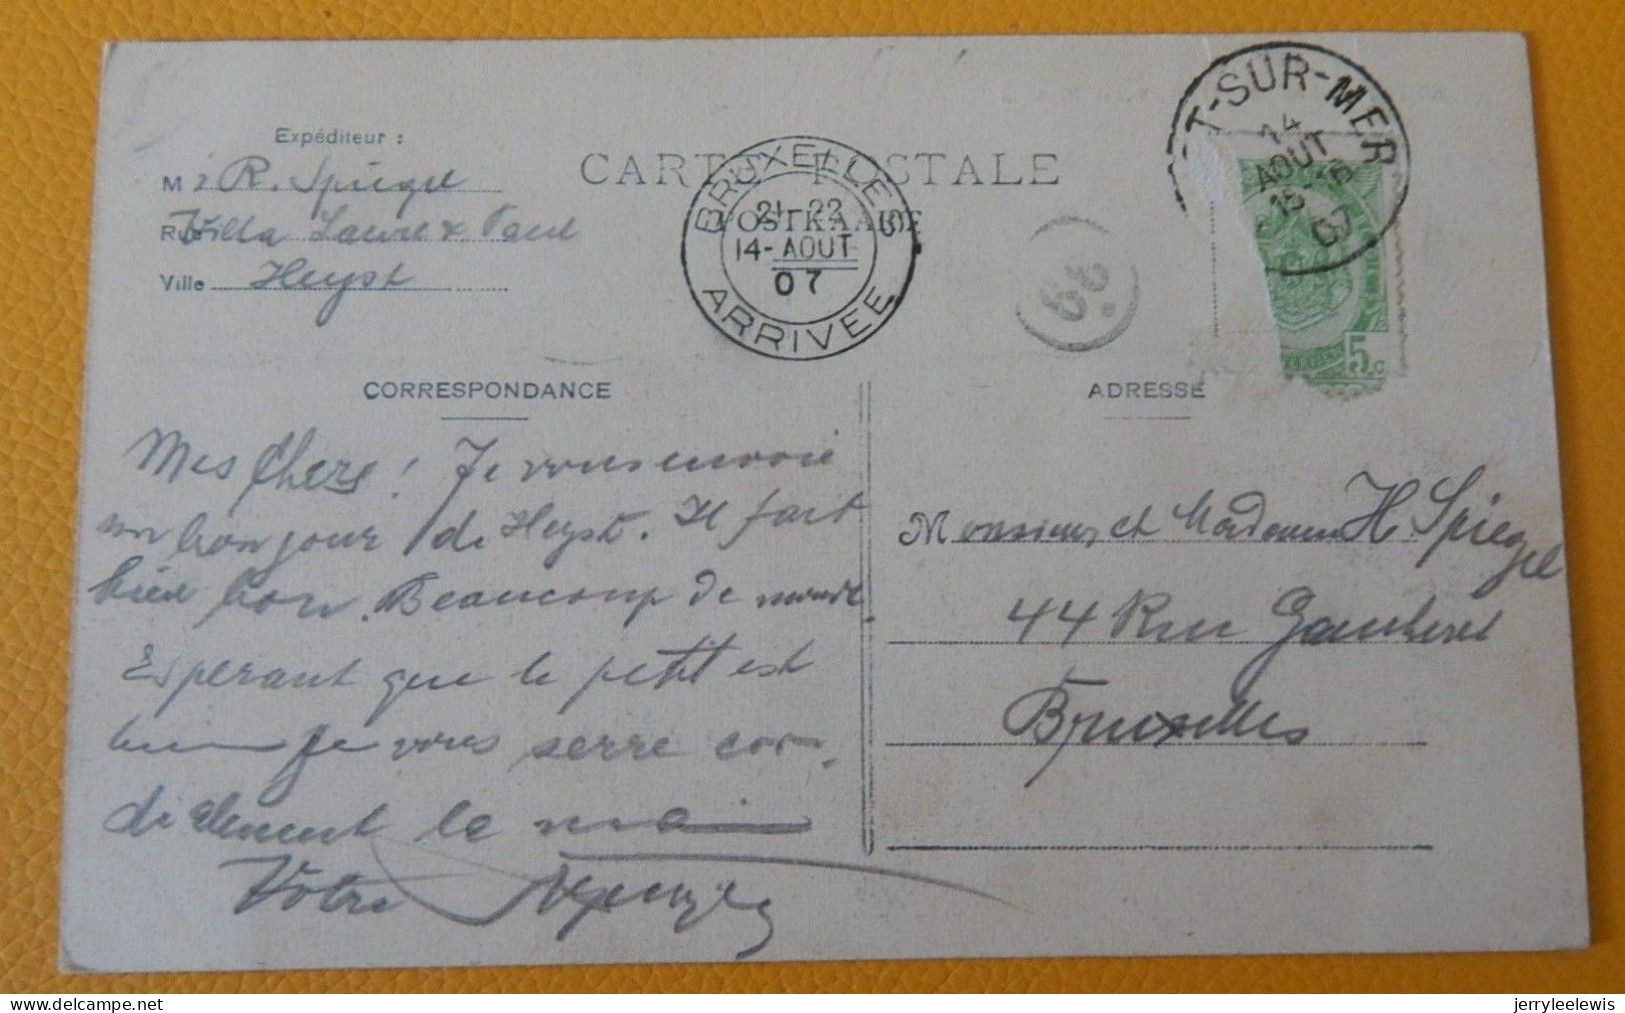 Expéditeur :
M R. Spiegel
Rue Villa Laure & Paul
Ville Heyst
CARTE POSTALE
POSTKAART
BRUXELLES
21-22
14-AOUT
07
ARRIVEE
ST-SUR-MER
14
AOUT
07
5c
CORRESPONDANCE
ADRESSE
Mes Chers! Je vous envoie
un bonjour de Heyst. Il fait
bien bon. Beaucoup de monde
Esperant que le petit est
bien je vous serre cor-
dialement la main
Votre
Monsieur et Madame H. Spiegel
44 Rue
Bruxelles
www.delcampe.net
jerryleelewis